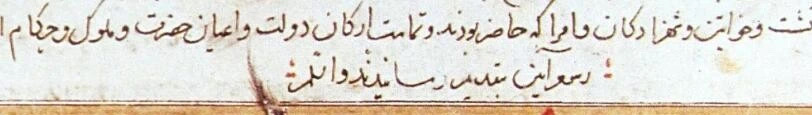 گشت و خواتین و شهزادگان و امرا که حاضر بودند و تمامت ارکان دولت و اعیان حضرت و ملوک و حکام
رسم آیین بتقدیم رسانیدند و